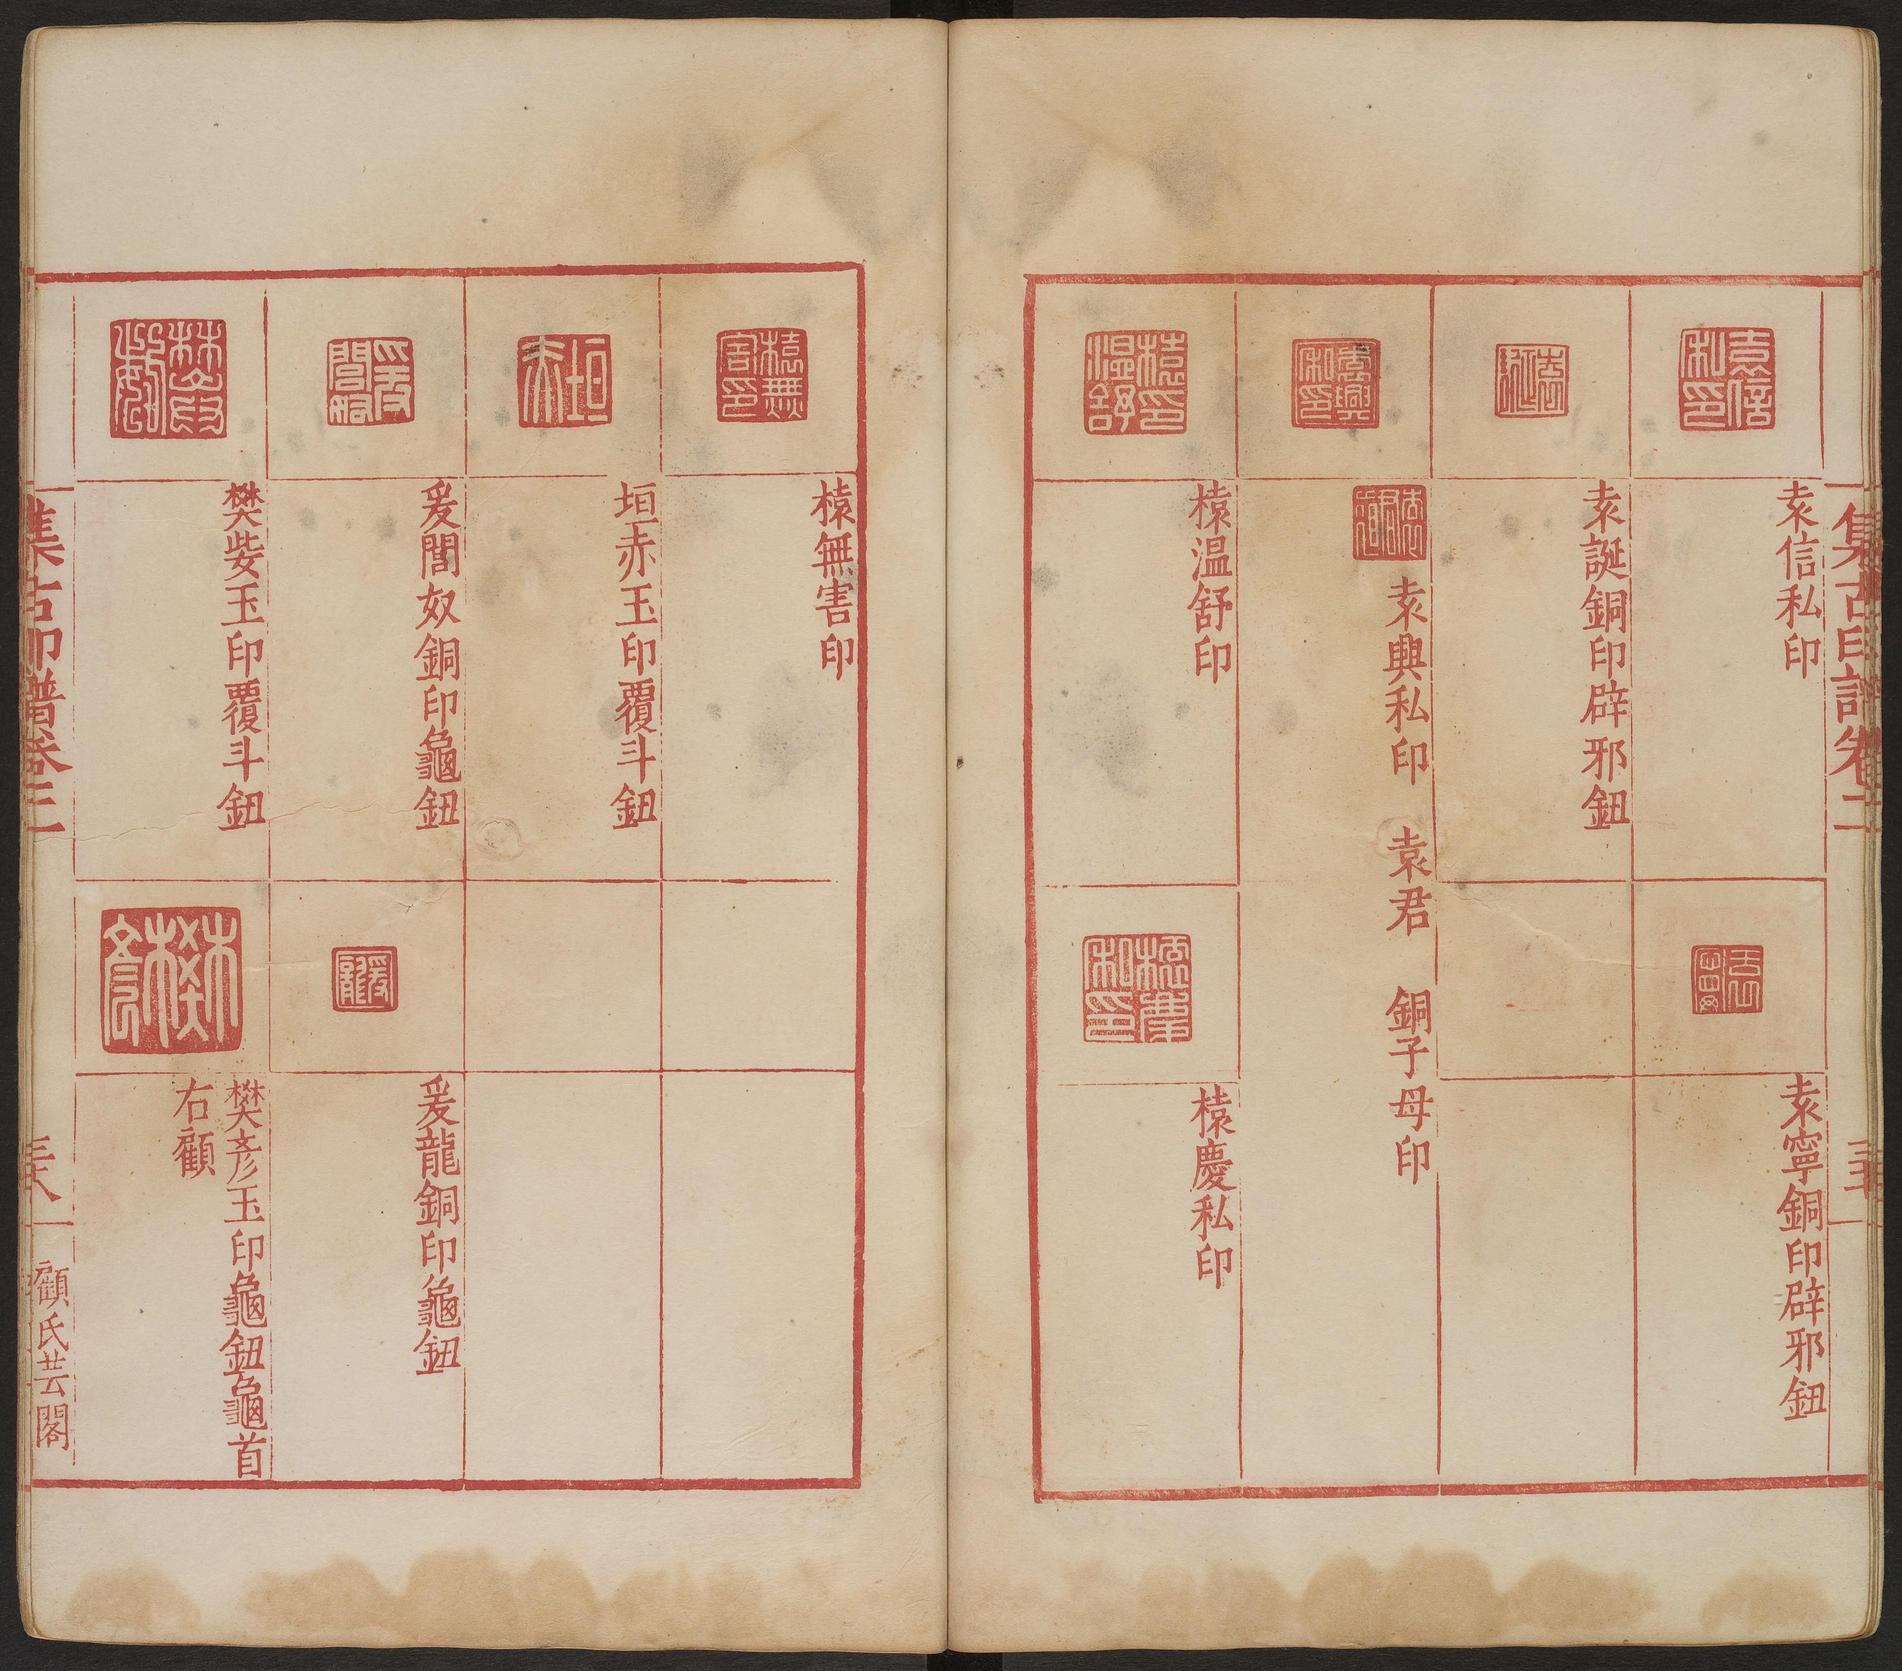 集古印譜卷二
袁信私印
袁寧銅印辟邪鈕
袁誕銅印辟邪鈕
袁興私印 袁君 銅子母印
榬溫舒印
榬慶私印
榬無害印
垣赤玉印覆斗鈕
爰閭奴銅印龜鈕
爰龍銅印龜鈕
樊𡛷玉印覆斗鈕
樊彥玉印龜鈕龜首
右顧
集古印譜卷二
顧氏芸閣